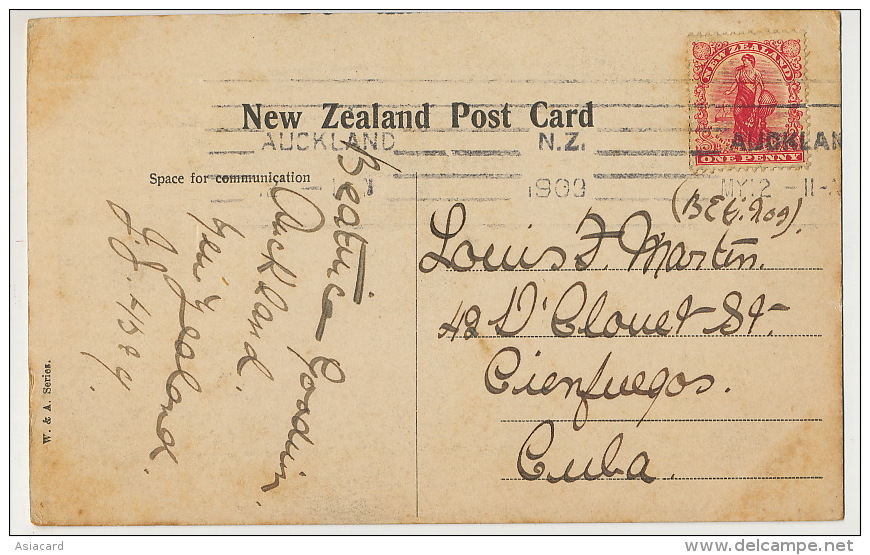 NEW ZEALAND
ONE PENNY
New Zealand Post Card
AUCKLAND N.Z. AUCKLAN
1909 MY.2 -11-
Space for communication
Beatrice Goodwin
Auckland.
New Zealand.
Louis F. Martin.
48 D'Clouet St.
Cienfuegos.
Cuba.
W. & A. Series.
Asiacard
www.delcampe.net